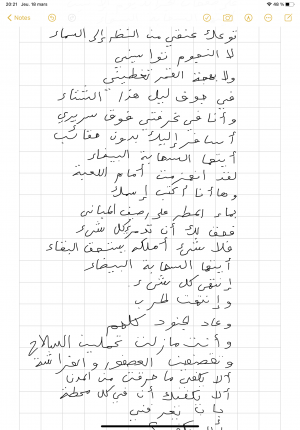 20:21 Jeu. 18 mars
48 %
Notes
توعك عنقي من النظر إلى السماء
لا النجوم تواسيني
ولا القمر
في جوف ليل هذا الشتاء
وأنا في غرفتي فوق سريري
أسافر إليك بدون حقائب
أيتها السحابة البيضاء
لقد انهزمت أمام اللعبة
وها أنا أكتب إسمك
بماء المطر على رصيف المباني
فحق لك أن تدمري كل شيء
فلا شيء أملكه يستحق البقاء
أيتها السحابة البيضاء
إنتهى كل شيء
وإنتهت الحرب
وعاد الجنود كلهم
وأنت مازلت تحملين السلاح
وتقصفين العصفور والفراشة
ألا يكفي ما حرقت من المدن
ألا يكفيك أن في كل محطة